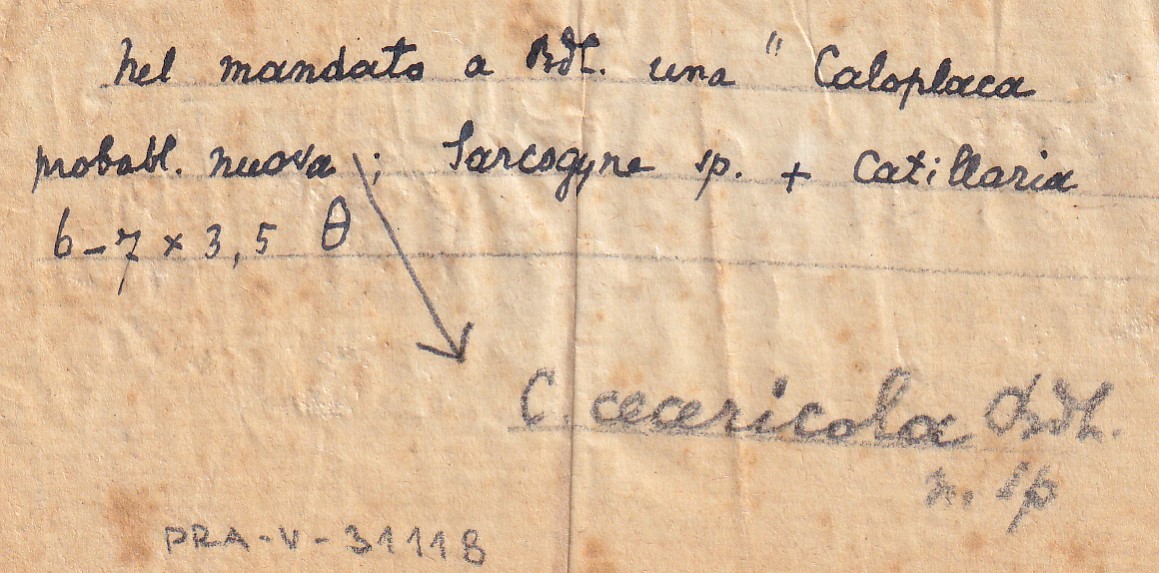 nel mandato a Bdl. una " Caloplaca
probabl. nuova ; Sarcogyne sp. + Catillaria
6-7 x 3,5 θ
C. Bdl.
n. sp
PRA-V-31118